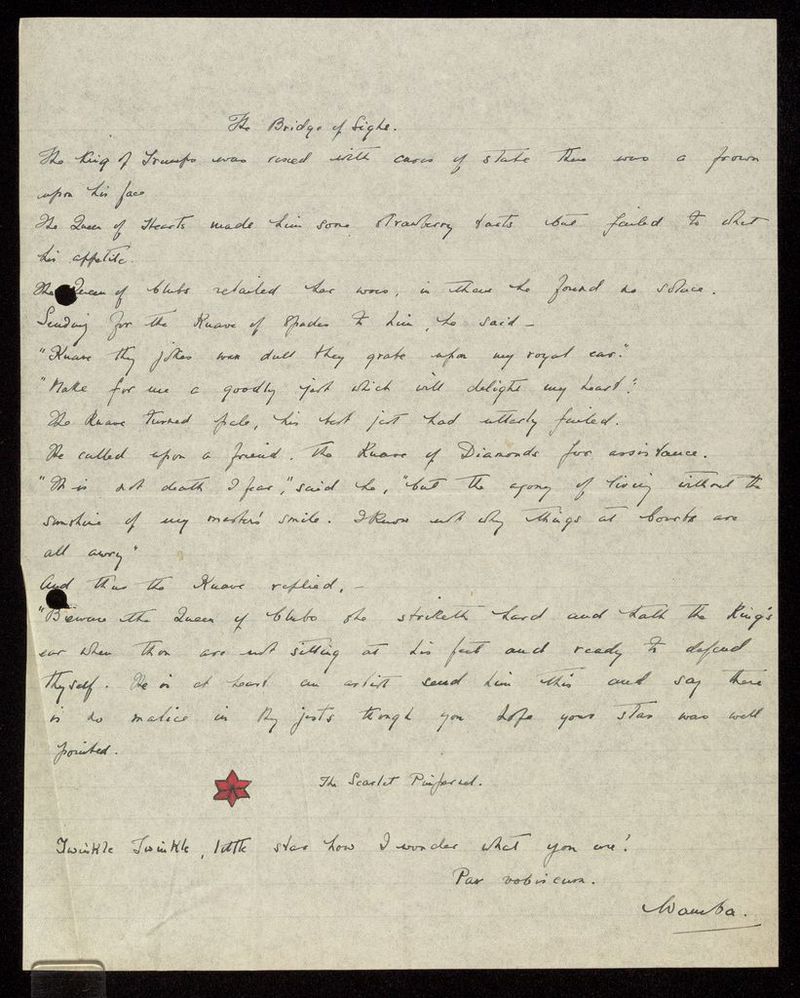 The Bridge of Sighs.
The King of Trumps was vexed with cares of state there was a frown
upon his face
The Queen of Hearts made him some strawberry tarts but failed to whet
his appetite.
The Queen of Clubs retailed her woes, in them he found no solace.
Sending for the Knave of Spades to him, he said –
"Knave thy jokes wax dull they grate upon my royal ear."
"Make for me a goodly jest which will delight my heart".
The Knave turned pale, his best jest had utterly failed.
He called upon a friend. The Knave of Diamonds for assistance.
"It is not death I fear," said he, "but the agony of living without the
sunshine of my master's smile. I know not why things at Courts are
all awry"
And thus the Knave replied, –
"Beware the Queen of Clubs she striketh hard and hath the King's
ear when thou are not sitting at his feet and ready to defend
thyself. He is at heart an artist send him this and say there
is no malice in thy jests though you hope your star was well
pointed.
The Scarlet Pimpernel.
Twinkle Twinkle, little star how I wonder what you are!
Pax vobiscum.
Wamba.